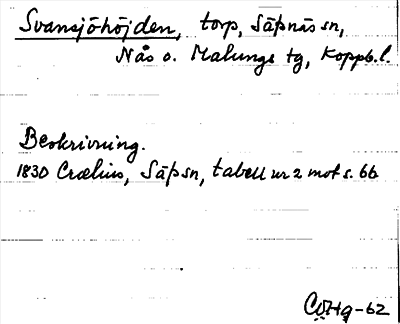 Svansjöhöjden, torp, Säfsnäs sn,
Nås o. Malungs tg, Koppb. l.
Beskrivning.
1830 Crælius, Säfs sn, tabell nr 2 mot s. 66
CÖHg-62